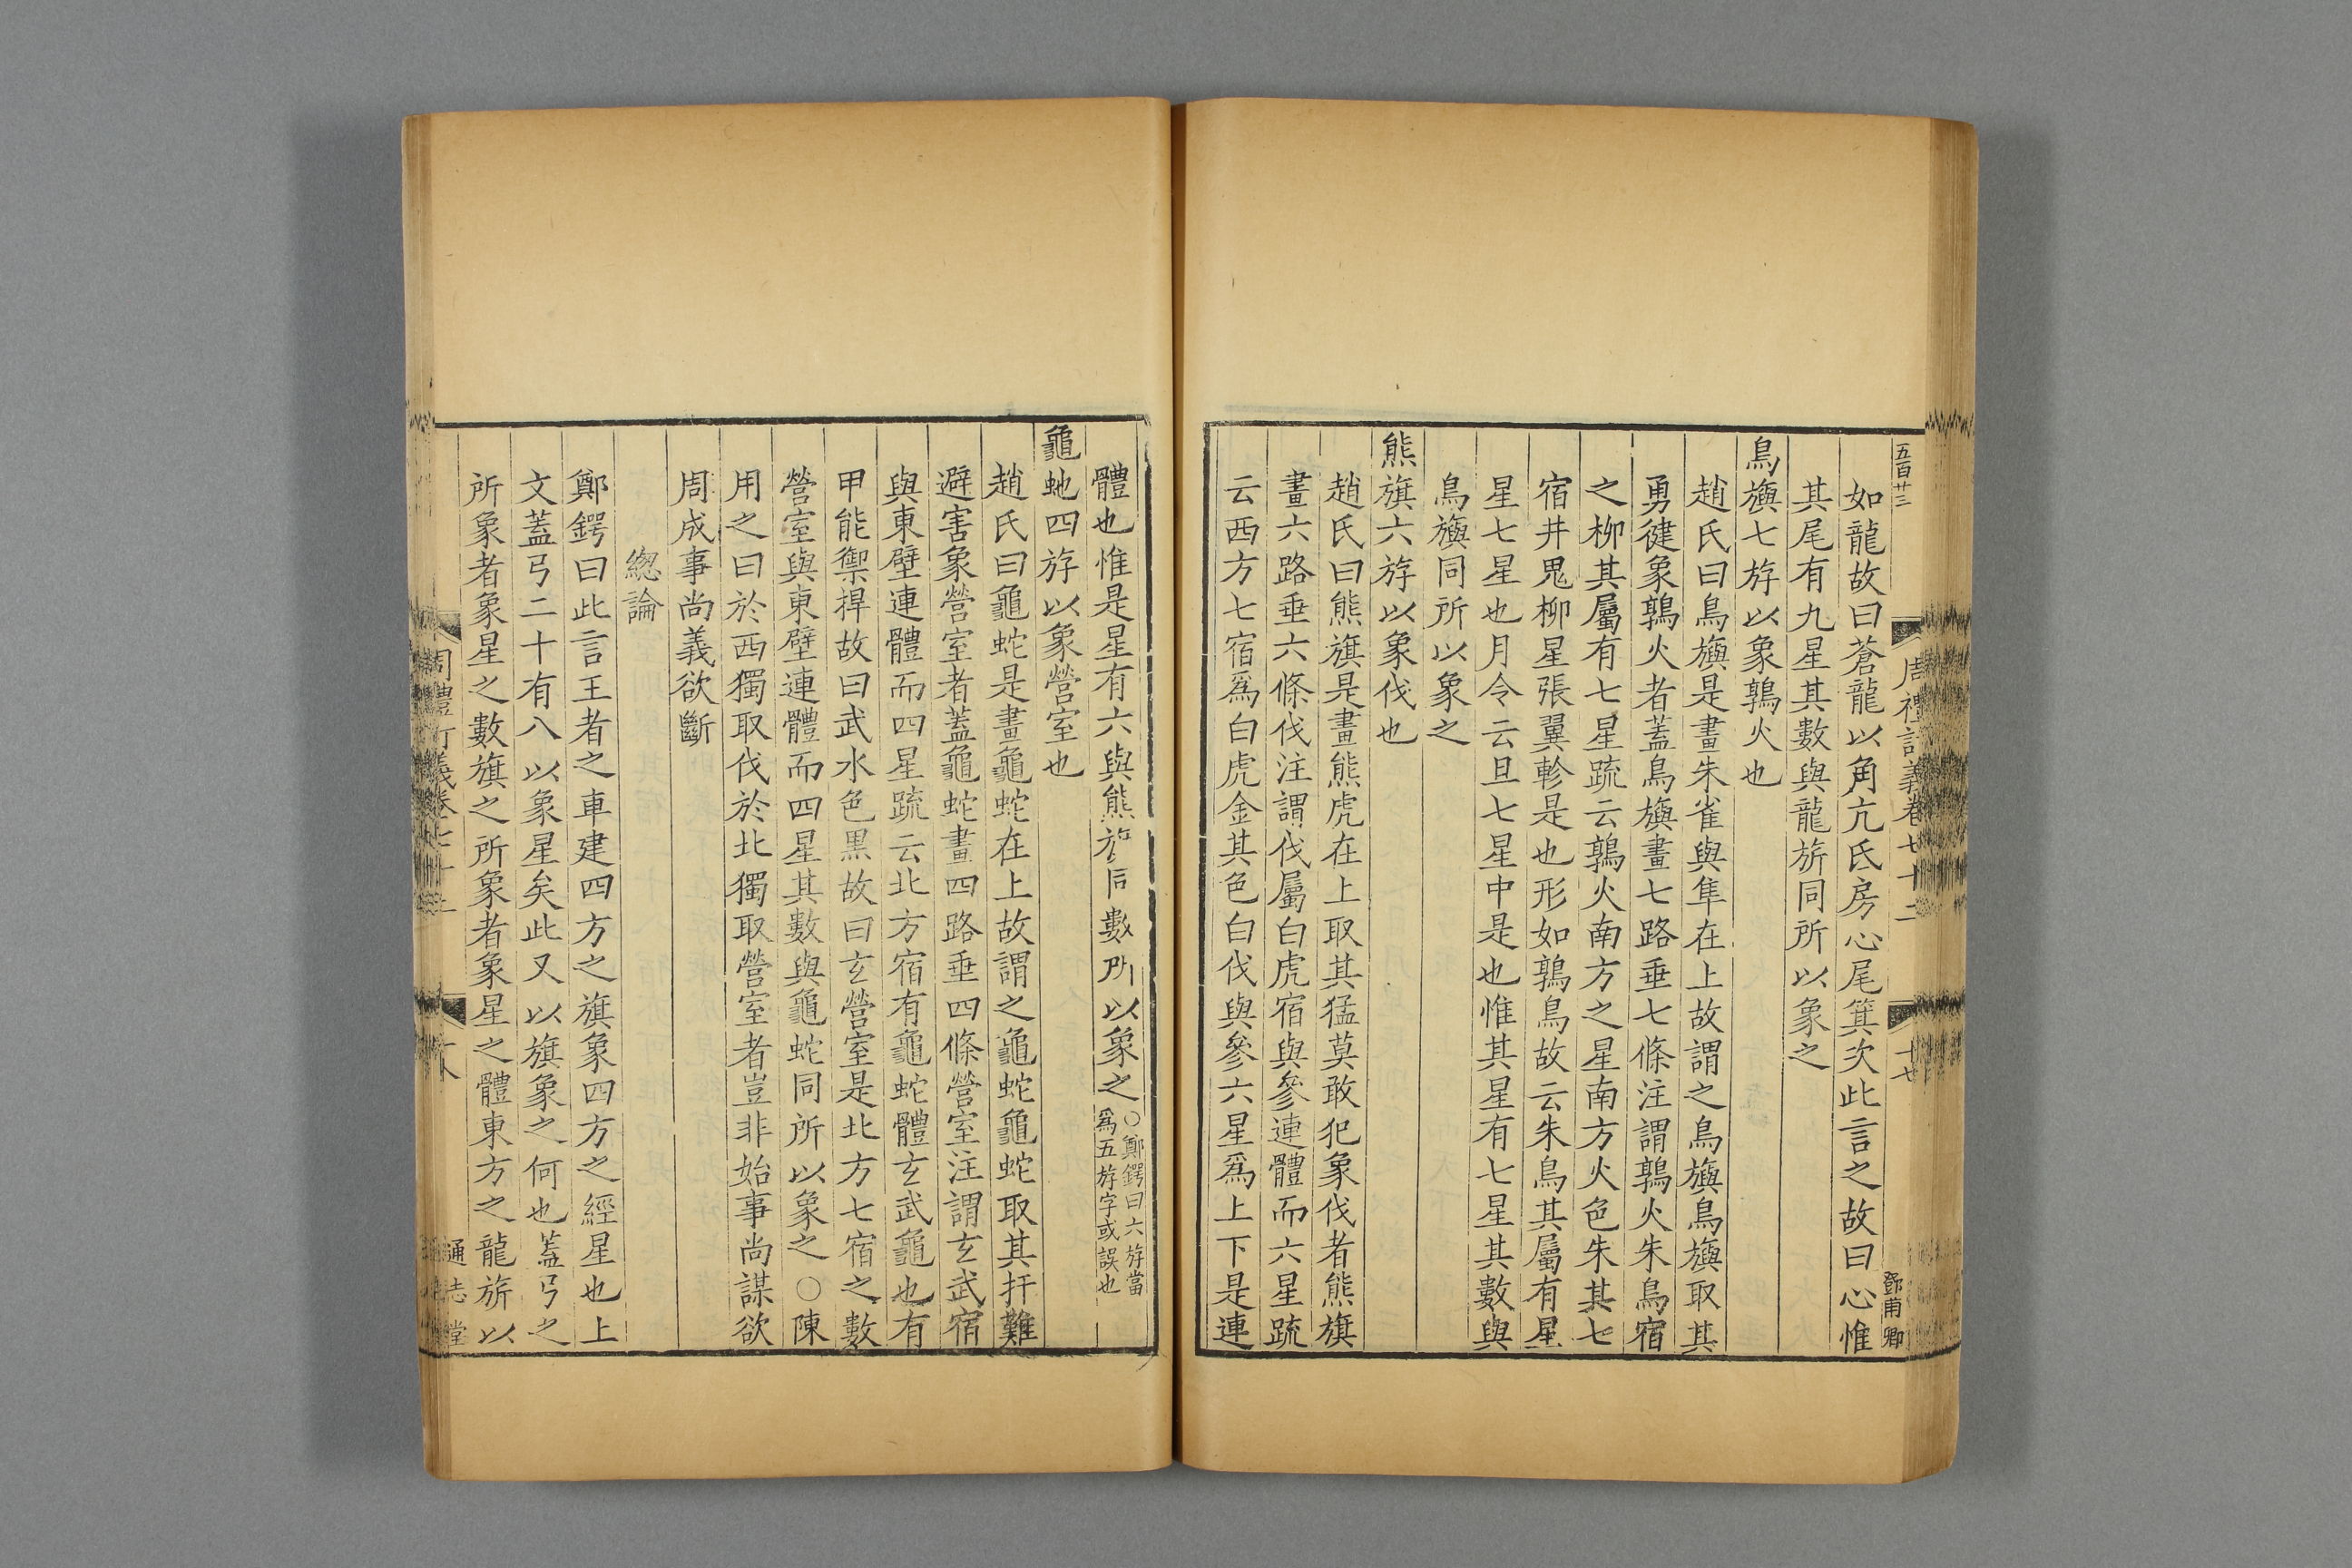 五百廿三
周禮訂義卷七十二
十七
鄧甫卿
如龍故曰蒼龍以角亢氐房心尾箕次此言之故曰心惟
其尾有九星其數與龍旂同所以象之
鳥旟七斿以象鶉火也
趙氏曰鳥旟是畫朱雀與隼在上故謂之鳥旟鳥旟取其
勇徤象鶉火者蓋鳥旟畫七路垂七條注謂鶉火朱鳥宿
之栁其屬有七星疏云鶉火南方之星南方火色朱其七
宿井鬼栁星張翼軫是也形如鶉鳥故云朱鳥其屬有星
星七星也月令云旦七星中是也惟其星有七星其數與
鳥旟同所以象之
熊旗六斿以象伐也
趙氏曰熊旗是畫熊虎在上取其猛莫敢犯象伐者熊旗
畫六路垂六條伐注謂伐屬白虎宿與參連體而六星疏
云西方七宿爲白虎金其色白伐與參六星爲上下是連
體也惟是星有六與熊旂同數所以象之
○鄭鍔曰六斿當
爲五斿字或誤也
龜虵四斿以象營室也
趙氏曰龜蛇是畫龜蛇在上故謂之龜蛇龜蛇取其扞難
避害象營室者蓋龜蛇畫四路垂四條營室注謂玄武宿
與東壁連體而四星疏云北方宿有龜蛇體玄武龜也有
甲能禦捍故曰武水色黒故曰玄營室是北方七宿之數
營室與東壁連體而四星其數與龜蛇同所以象之○陳
用之曰於西獨取伐於北獨取營室者豈非始事尚謀欲
周成事尚義欲斷
緫論
鄭鍔曰此言王者之車建四方之旗象四方之經星也上
文蓋弓二十有八以象星矣此又以旗象之何也蓋弓之
所象者象星之數旗之所象者象星之體東方之龍旂以
周禮訂義卷七十二
十八
通志堂